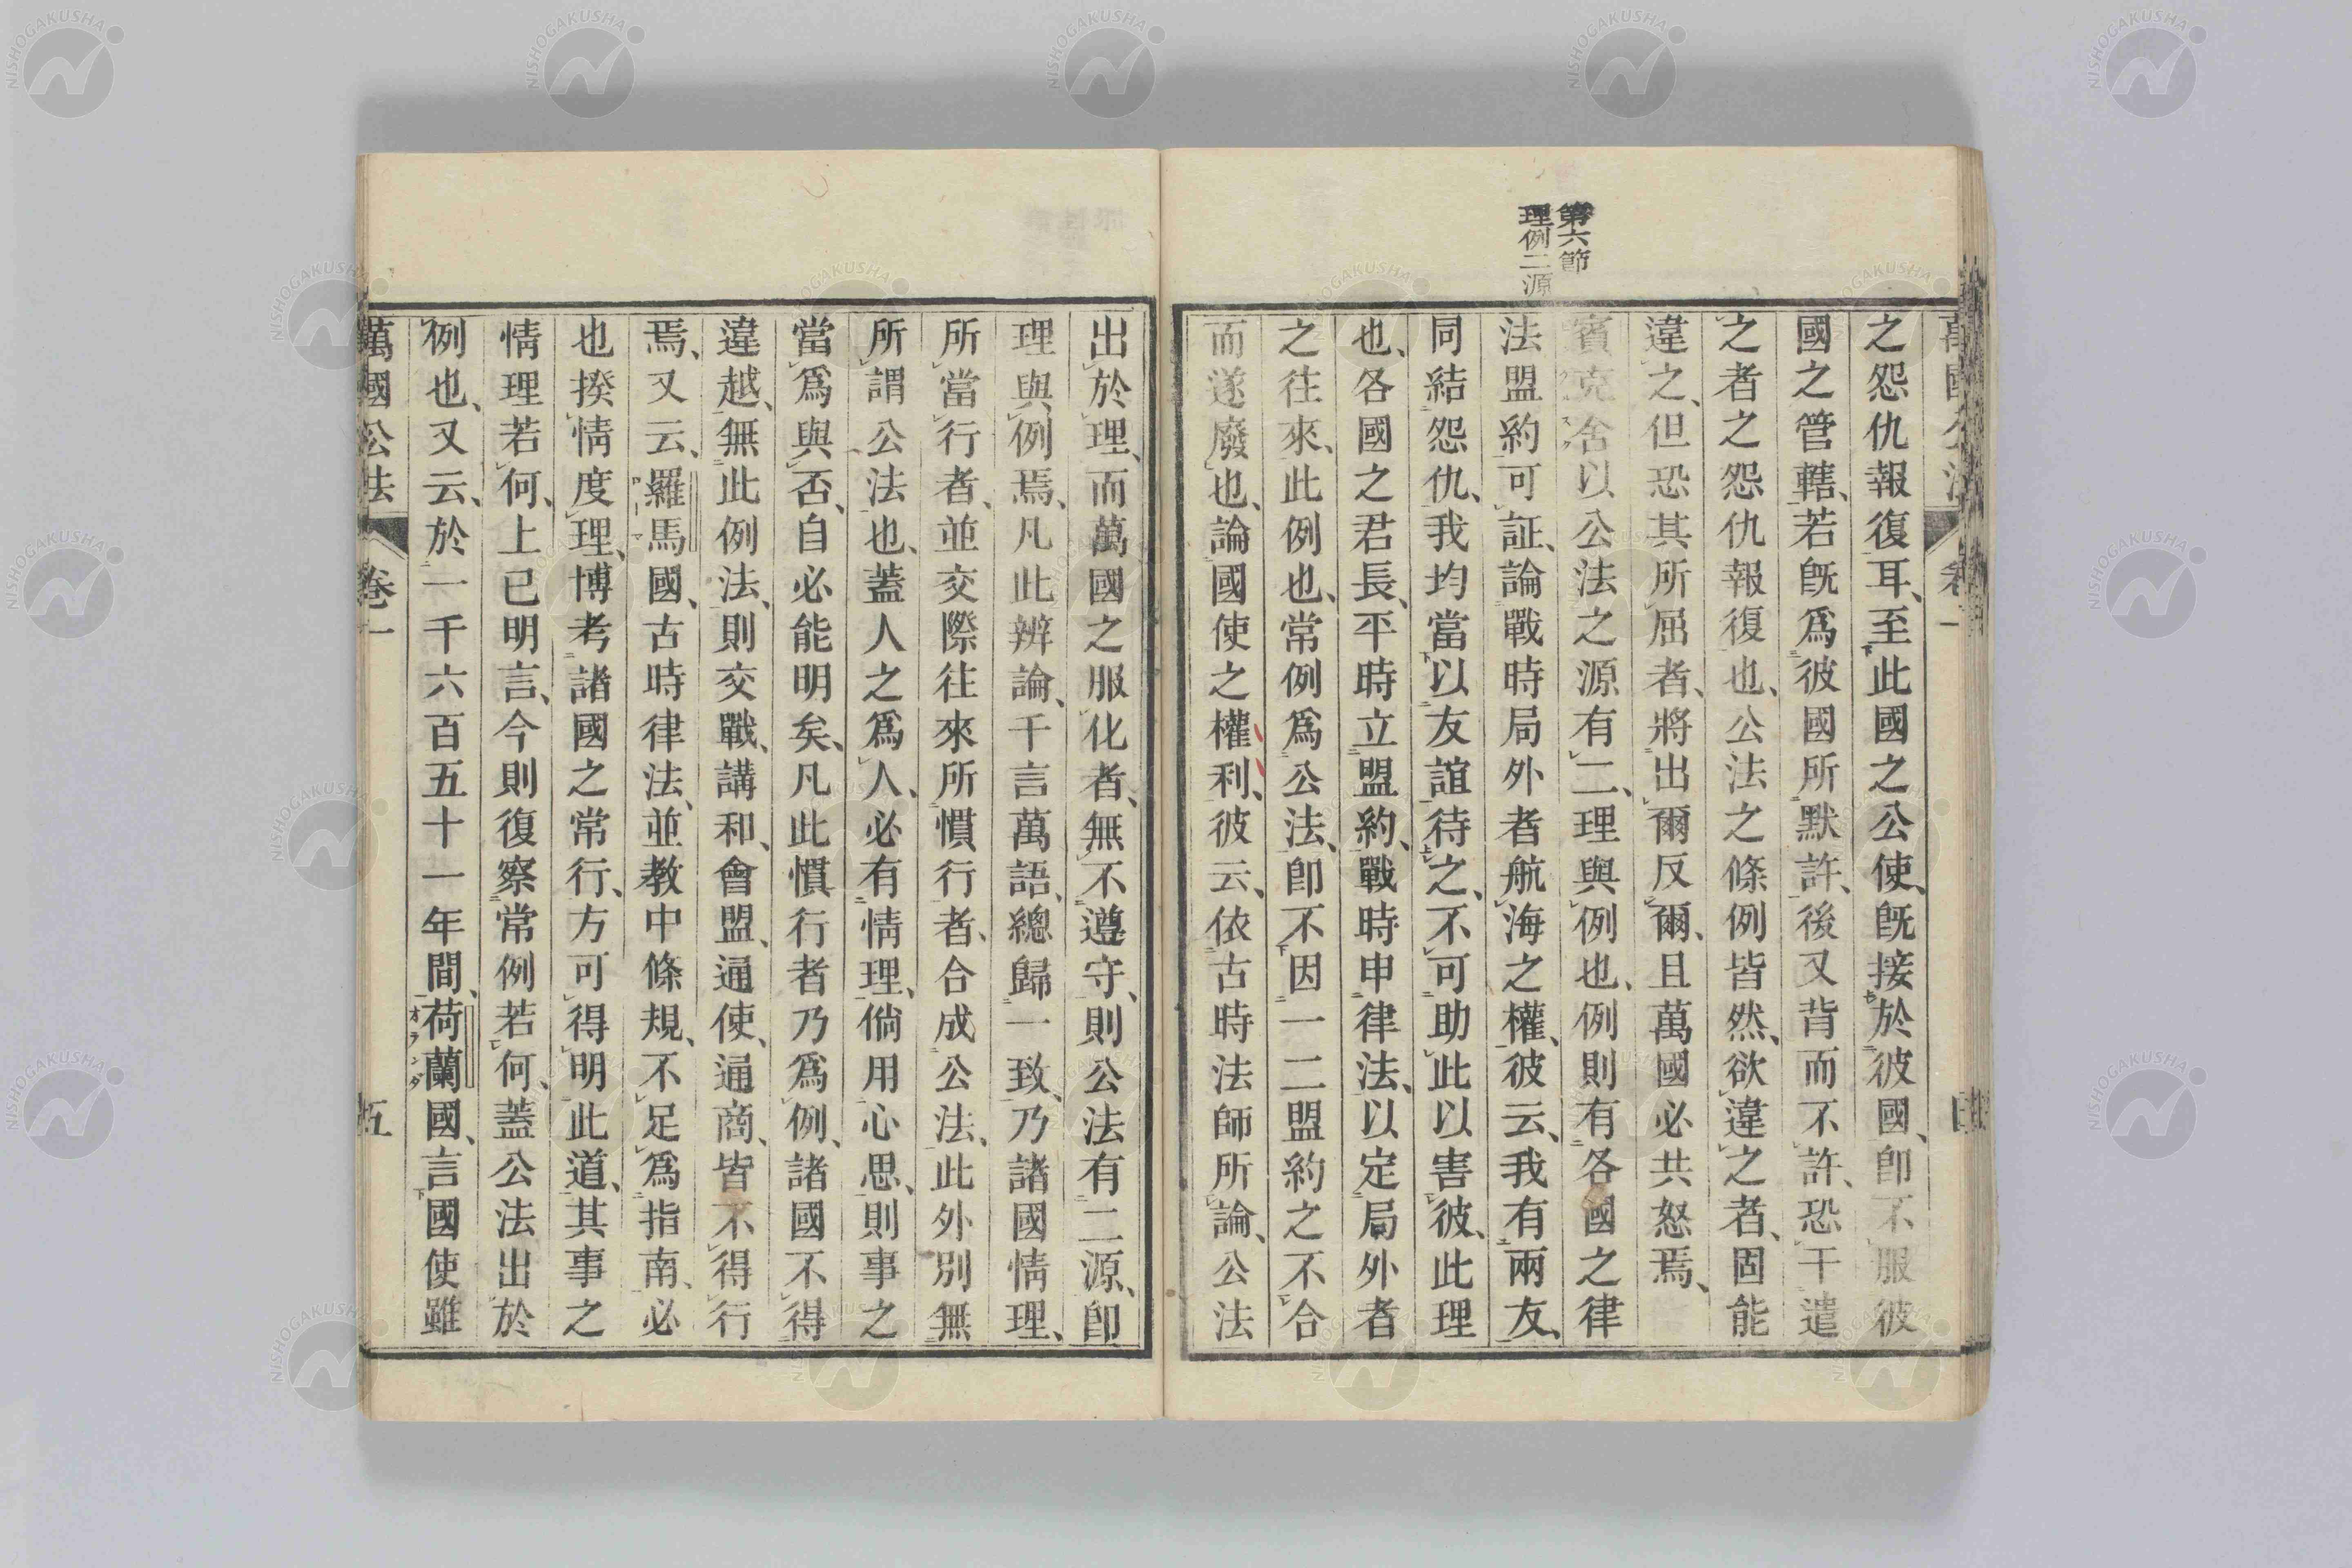 萬國公法 卷一
之怨仇報復耳、至此國之公使、旣接於彼國、卽不服彼
國之管轄、若旣爲彼國所默許、後又背而不許、恐干遣
之者之怨仇報復也、公法之條例皆然、欲違之者、固能
違之、但恐其所屈者、將出爾反爾、且萬國必共怒焉、
第六節
理例二源
賓克舍以公法之源有二、理與例也、例則有各國之律
法盟約可証、論戰時局外者航海之權、彼云、我有兩友、
同結怨仇、我均當以友誼待之、不可助此以害彼、此理
也、各國之君長、平時立盟約、戰時申律法、以定局外者
之往來、此例也、常例爲公法、卽不因一二盟約之不合
而遂廢也、論國使之權利、彼云、依古時法師所論、公法
出於理、而萬國之服化者、無不遵守、則公法有二源、卽
理與例焉、凡此辨論、千言萬語、總歸一致、乃諸國情理、
所當行者、並交際往來所慣行者、合成公法、此外別無
所謂公法也、蓋人之爲人、必有情理、倘用心思、則事之
當爲與否、自必能明矣、凡此慣行者乃爲例、諸國不得
違越、無此例法、則交戰、講和、會盟、通使、通商、皆不得行
焉、又云、羅馬國、古時律法、並教中條規、不足爲指南、必
也揆情度理、博考諸國之常行、方可得明此道、其事之
情理若何、上已明言、今則復察常例若何、蓋公法出於
例也、又云、於一千六百五十一年間、荷蘭國、言國使雖
オランダ
萬國公法 卷一 五
NISHOGAKUSHA